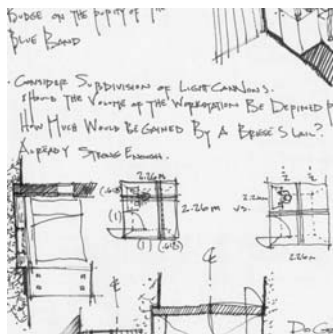 BUDGE ON THE PURITY OF THE
BLUE BAND
· CONSIDER SUBDIVISION OF LIGHT CANNONS.
SHOULD THE VOLUME OF THE WORKSTATION BE DEFINED
HOW MUCH WOULD BE GAINED BY A BRISE SOLEIL?
ALREADY STRONG ENOUGH.
2.26m
(.618)
(1)
2.26m
vs.
2.26m
(1) (.618)
2.26m
℄
℄